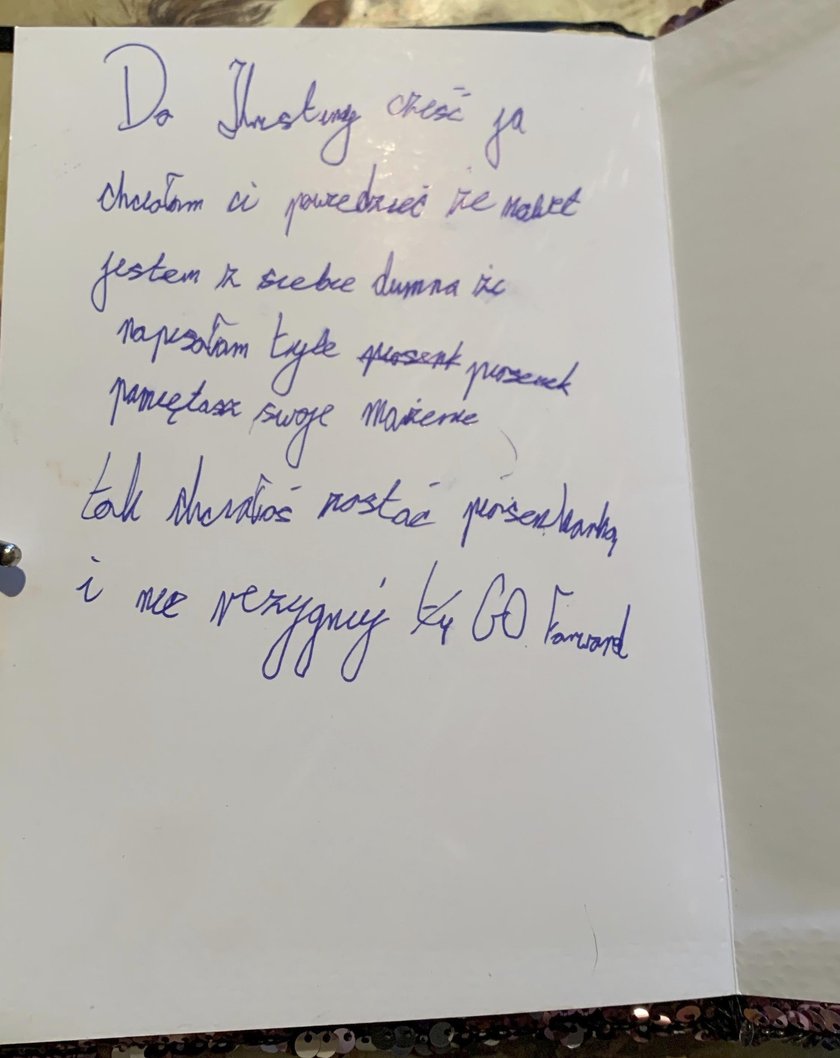 Do Justyny cześć ja
chciałam ci powiedzieć że nawet
jestem z siebie dumna że
napisałam tyle piosenk piosenek
pamiętasz swoje mażenie
tak chciałaś zostać piosenkarką
i nie rezygnuj ty GO Forward